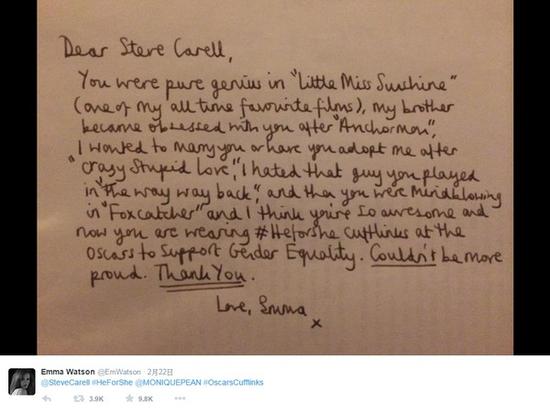 Dear Steve Carell,
You were pure genius in "Little Miss Sunshine"
(one of my all time favourite films), my brother
became obsessed with you after "Anchorman",
I wanted to marry you or have you adopt me after
"Crazy Stupid Love", I hated that guy you played
in "The way way back", and then you were Mindblowing
in "Foxcatcher" and I think you're so awesome and
now you are wearing #Heforshe cufflinks at the
Oscars to Support Gender Equality. Couldn't be more
proud. Thank You.
Love, Emma
x
Emma Watson @EmWatson · 2月22日
@SteveCarell #HeForShe @MONIQUEPEAN #OscarsCufflinks
3.9K 9.8K